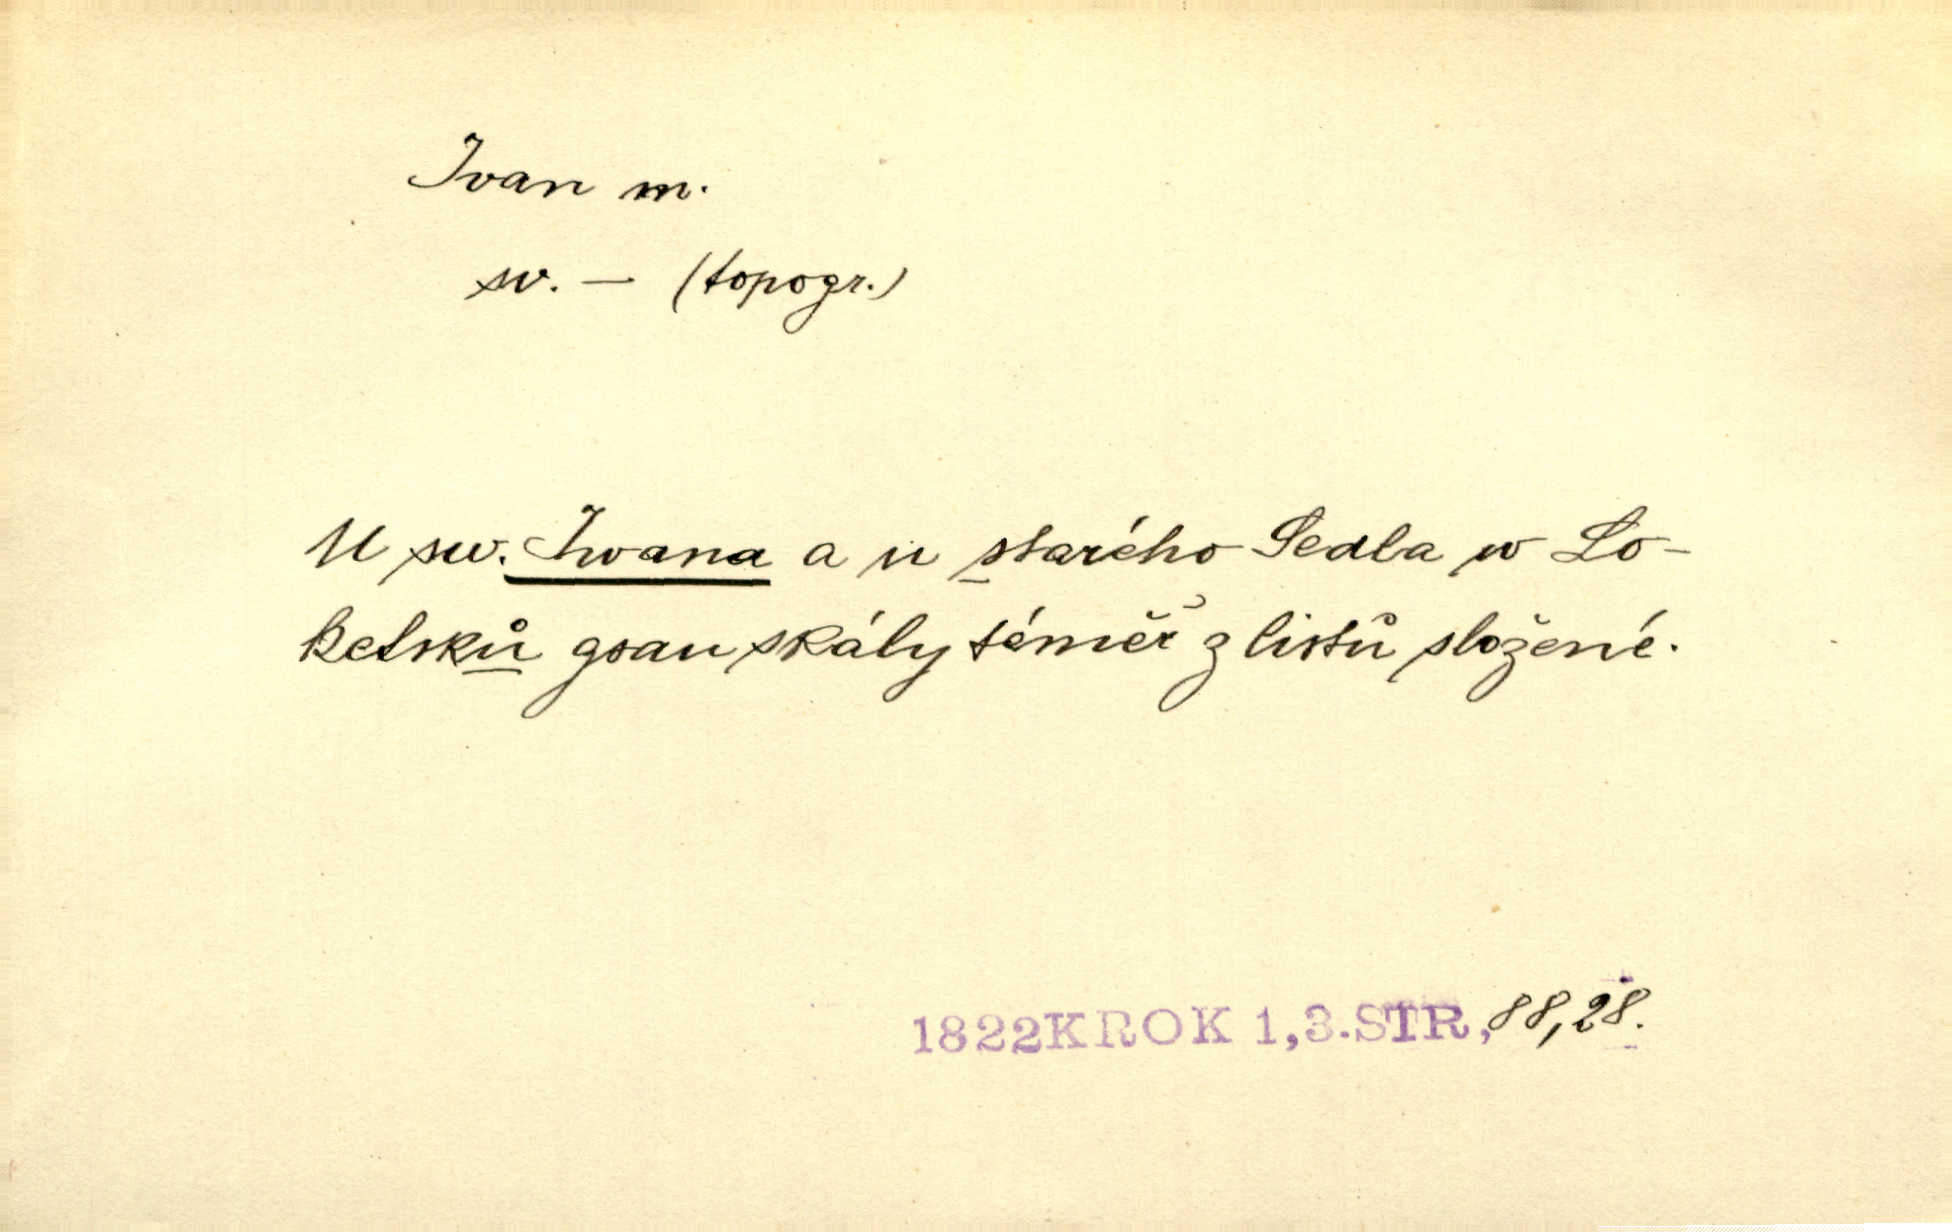 Ivan m.
sv. – (topogr.)
U sw. Iwana a u starého Sedla w Lo-
ketsků gsau skály téměř z listů složené.
1822 KROK 1,3.STR, 88,28.